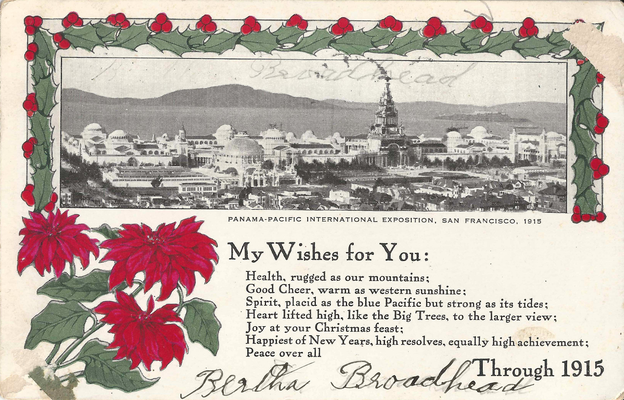 Broadhead
PANAMA-PACIFIC INTERNATIONAL EXPOSITION, SAN FRANCISCO, 1915
My Wishes for You:
Health, rugged as our mountains;
Good Cheer, warm as western sunshine;
Spirit, placid as the blue Pacific but strong as its tides;
Heart lifted high, like the Big Trees, to the larger view;
Joy at your Christmas feast;
Happiest of New Years, high resolves, equally high achievement;
Peace over all
Through 1915
Bertha Broadhead